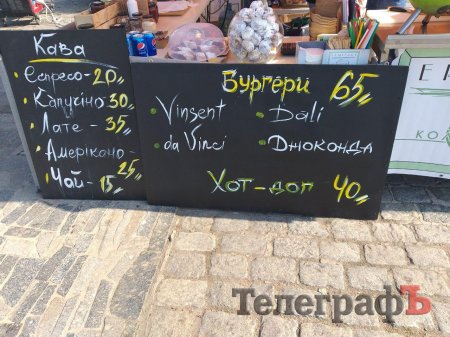 Кава
Еспресо-20
Капучіно 30
Лате - 35
Амеріконо-
25
Чай - 15
Бургери 65
Vinsent
Dali
da Vinci
Джоконда
Хот-дог 40
pepsi
ТелеграфЪ